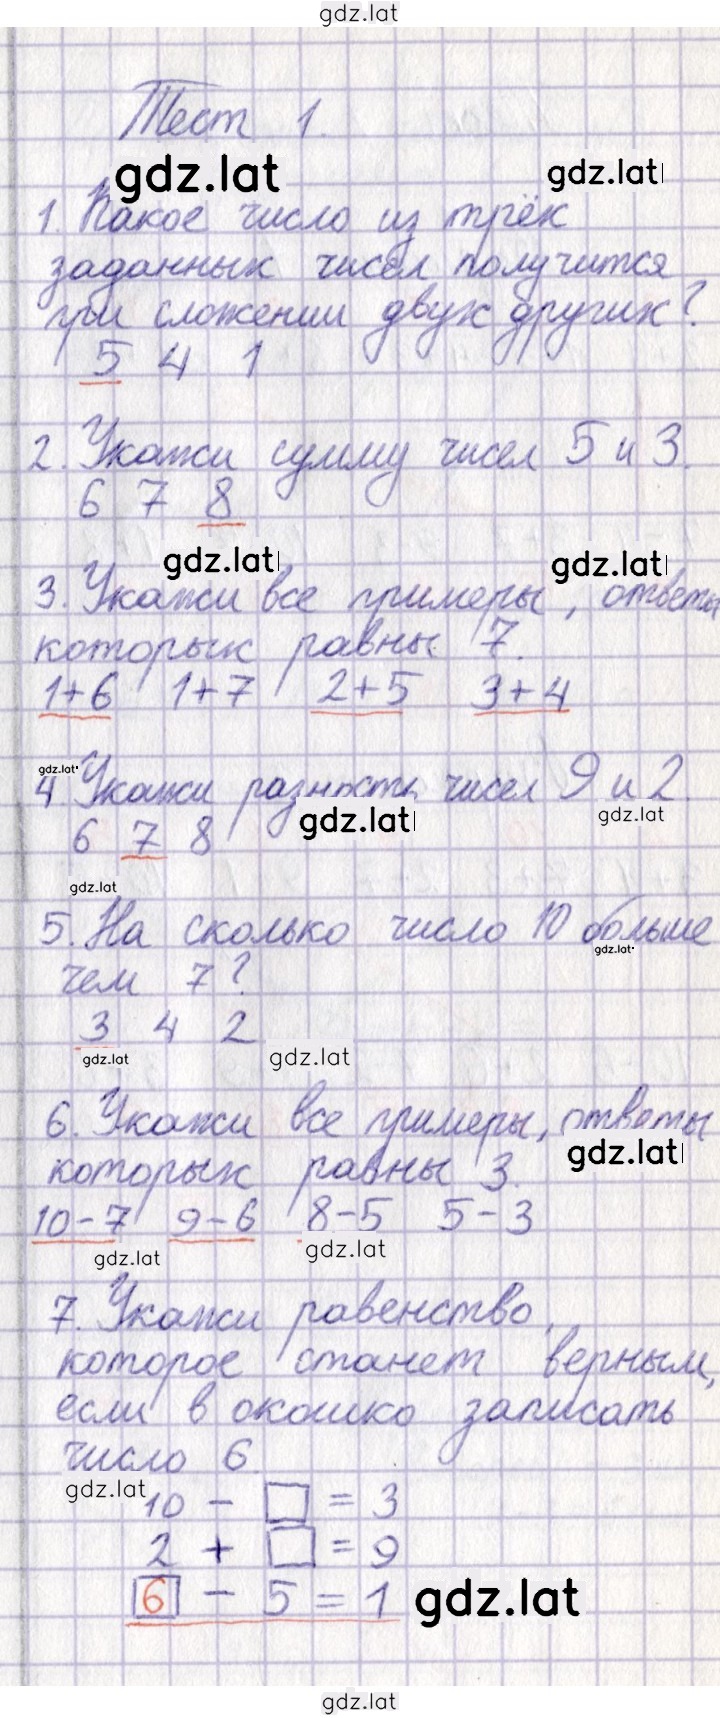 gdz.lat
Тест 1.
gdz.lat gdz.lat
1. Какое число из трёх
заданных чисел получится
при сложении двух других?
5 4 1
2. Укажи сумму чисел 5 и 3.
6 7 8
gdz.lat gdz.lat
3. Укажи все примеры, ответы
которых равны 7.
1+6 1+7 2+5 3+4
gdz.lat
4. Укажи разность чисел 9 и 2.
gdz.lat gdz.lat
6 7 8
gdz.lat
5. На сколько число 10 больше
gdz.lat
чем 7?
3 4 2
gdz.lat gdz.lat
6. Укажи все примеры, ответы
gdz.lat
которых равны 3.
10-7 9-6 8-5 5-3
gdz.lat gdz.lat
7. Укажи равенство,
которое станет верным,
если в окошко записать
число 6.
gdz.lat
10 - □ = 3
2 + □ = 9
6 - 5 = 1
gdz.lat
gdz.lat